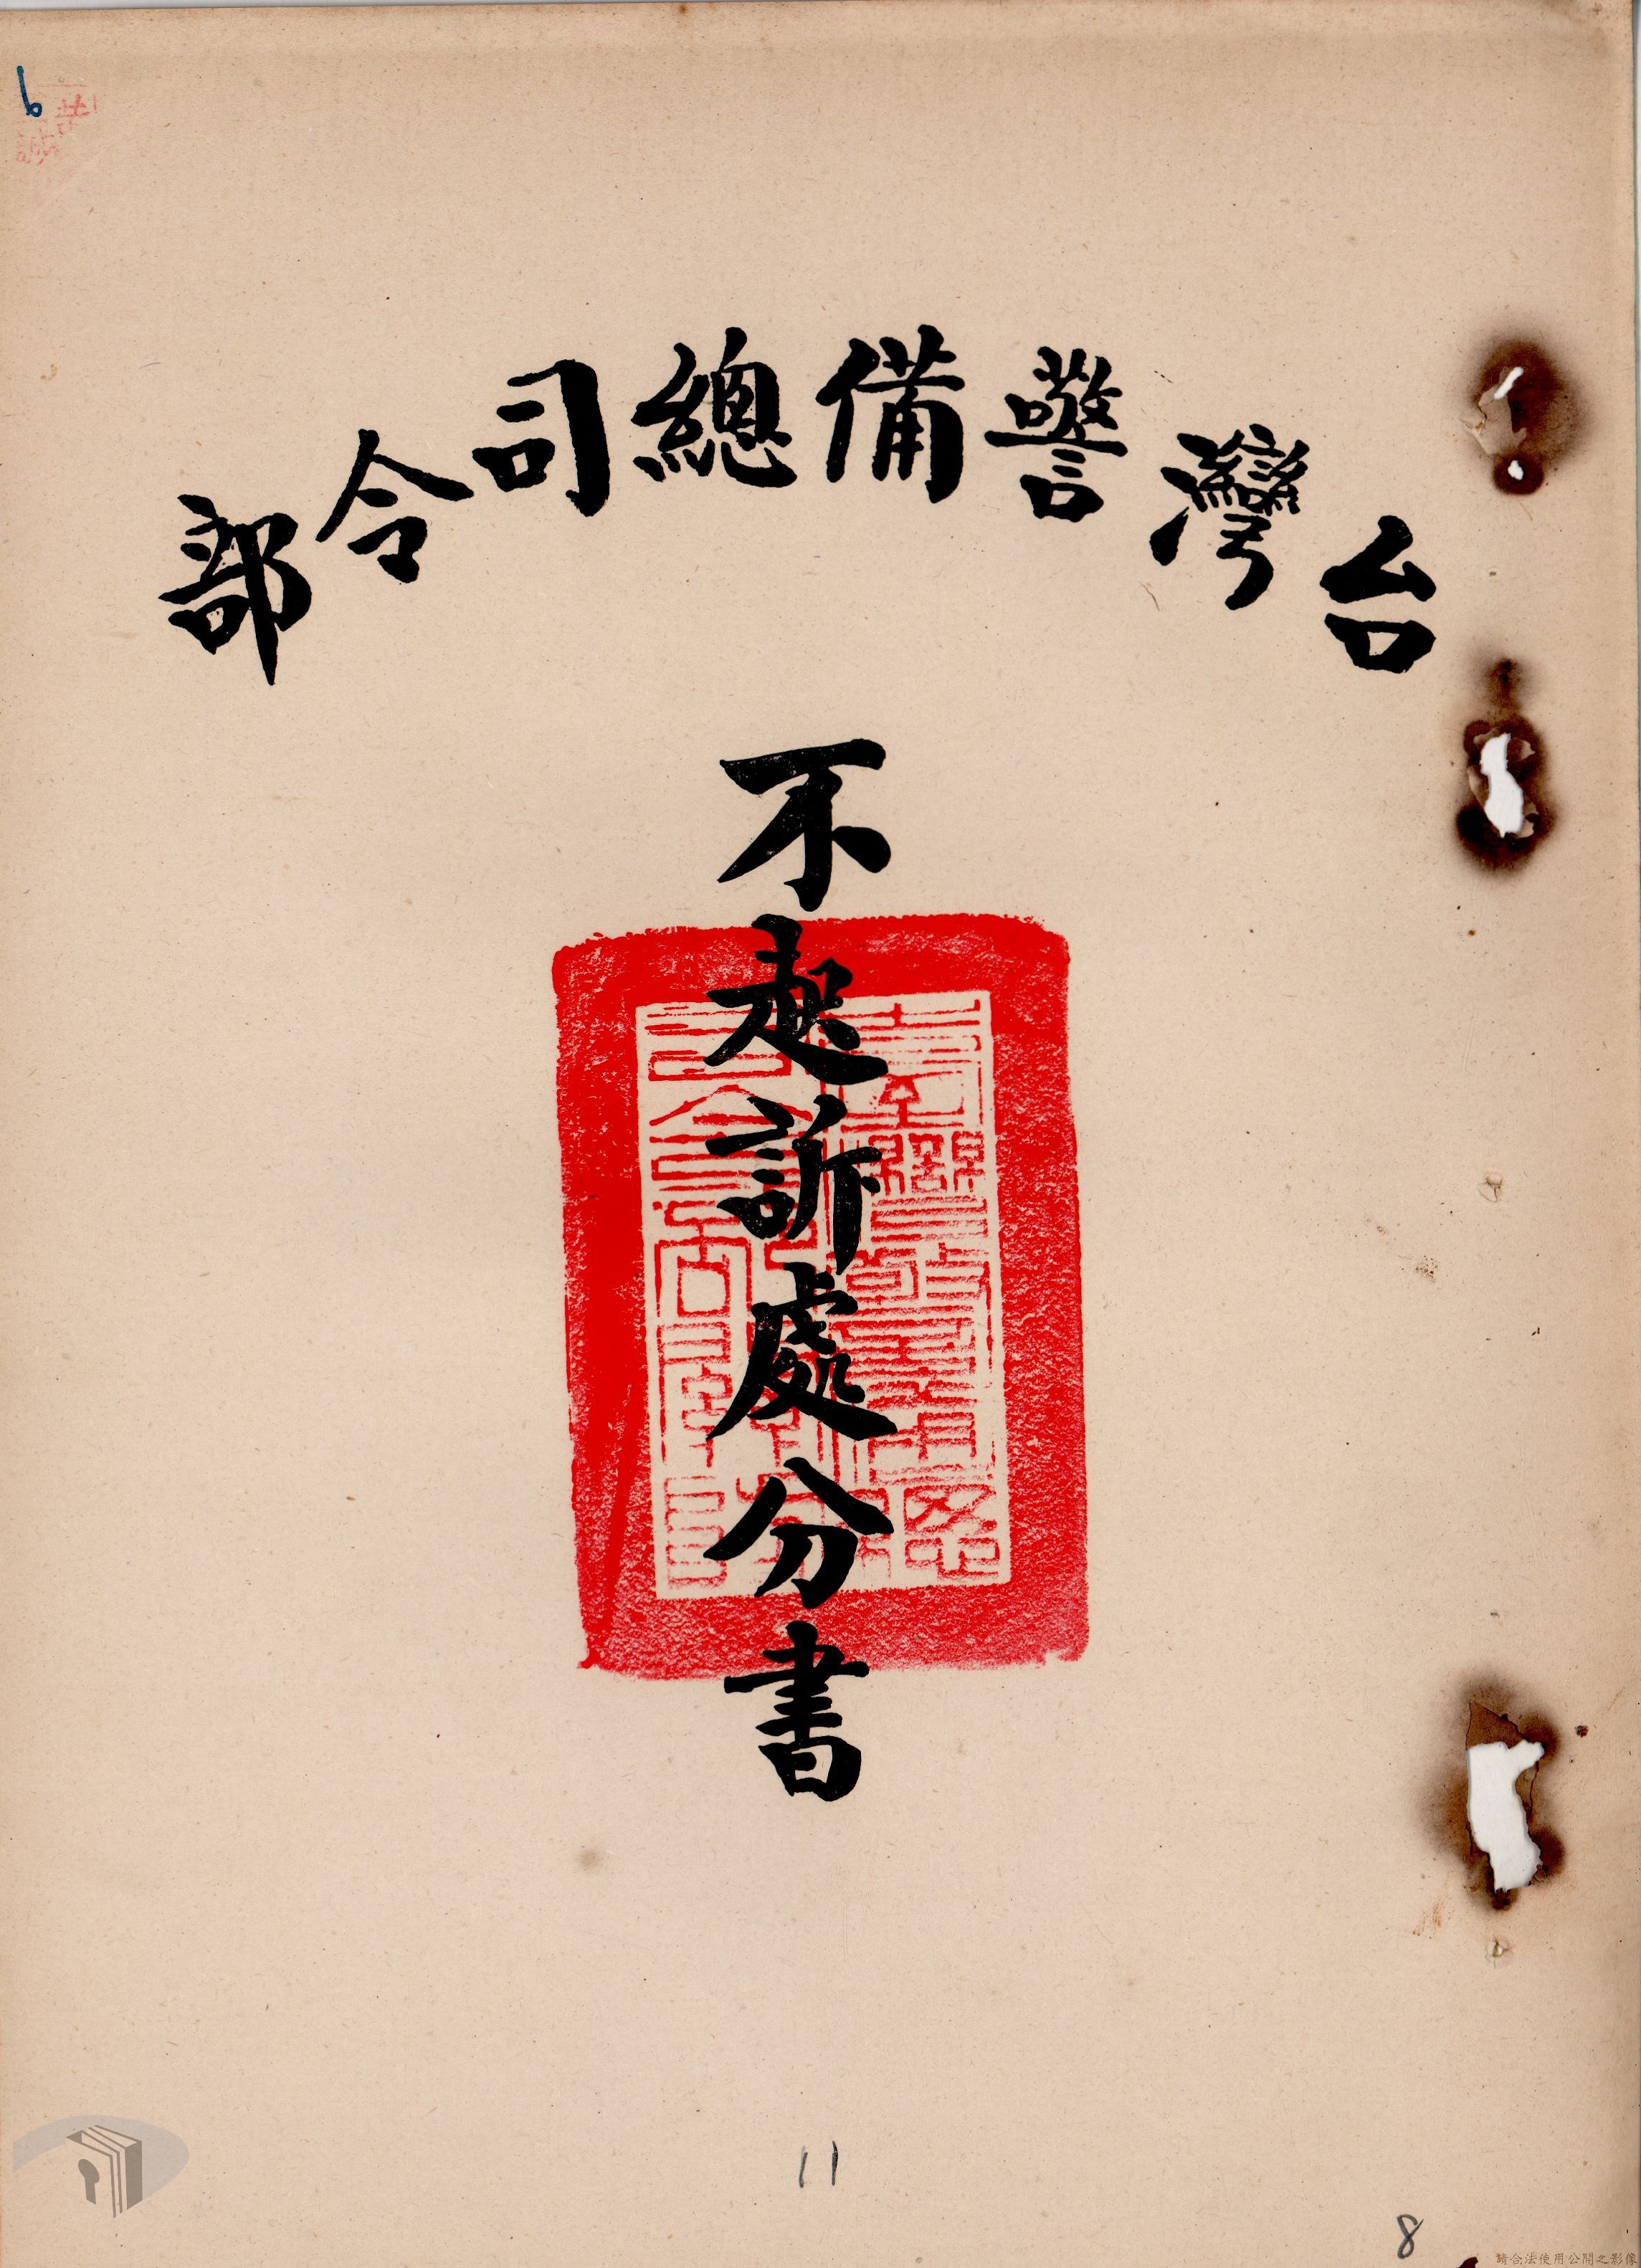 6
台灣警備總司令部
不起訴處分書
11
8
請合法使用公開之影像